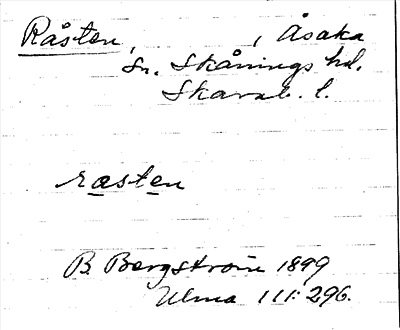 Råsten, , Åsaka
sn. Skånings hd.
Skarab. l.
ræsten
B. Bergström 1899
Ulma 111:296.